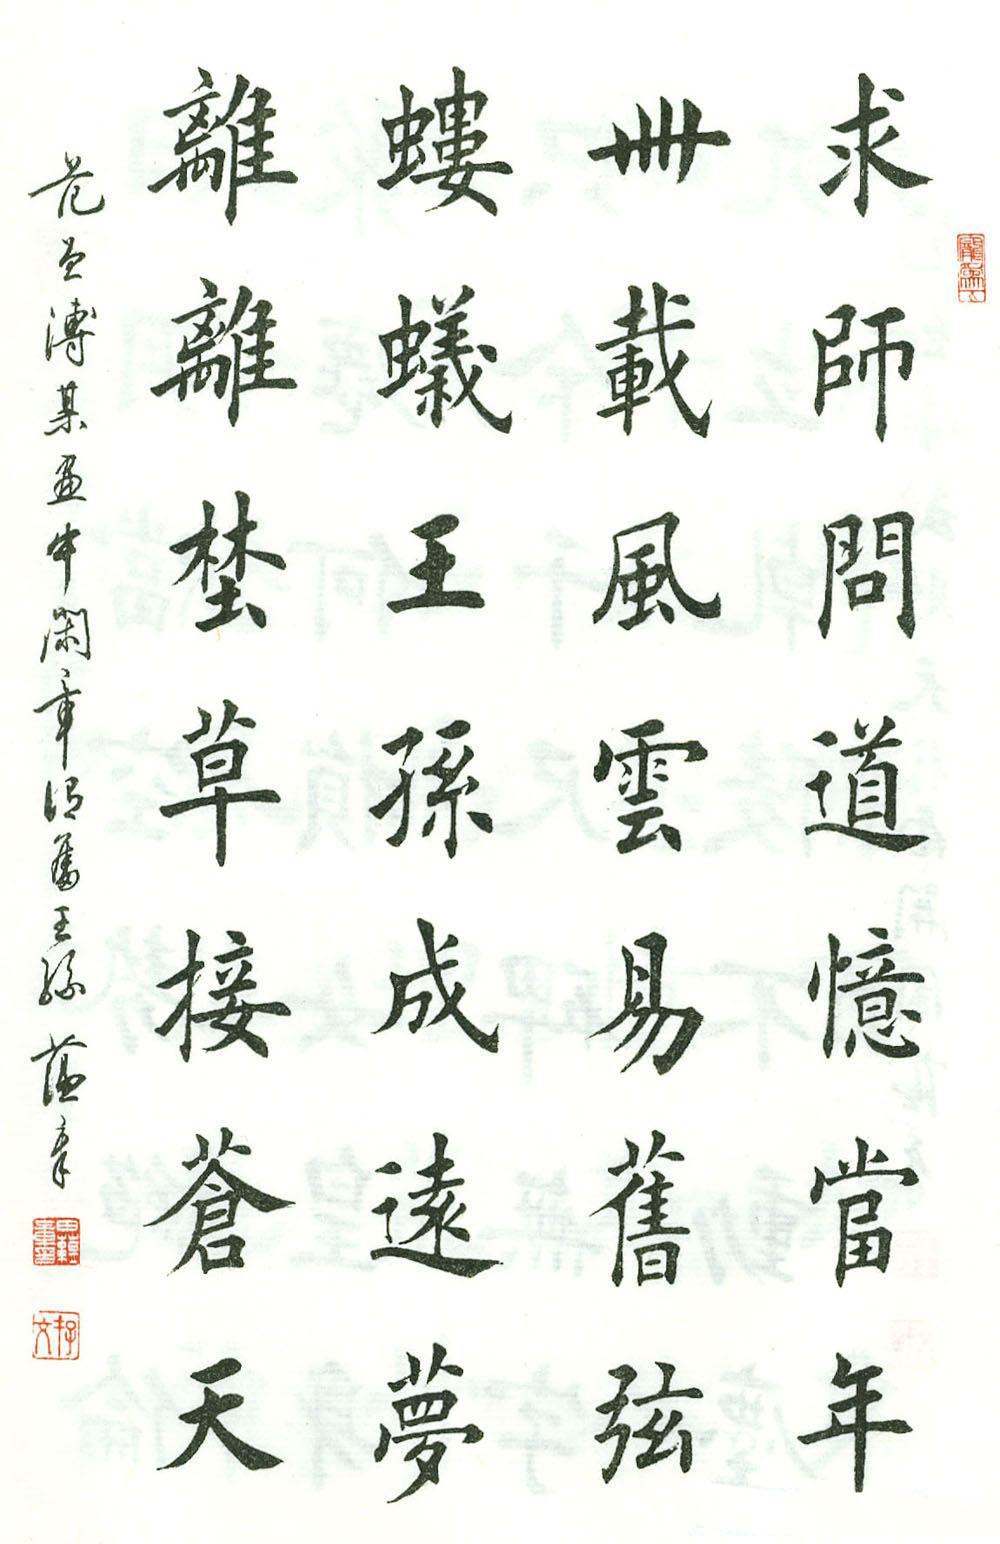 求師問道憶當年
卌載風雲易舊弦
螻蟻王孫成遠夢
離離埜草接蒼天
溥某畫中閑章 舊王孫